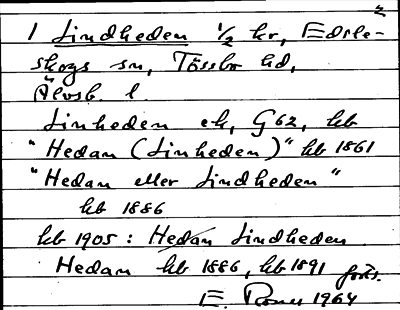 1 Lindheden 1/2 kr, Edsle-
skogs sn, Tössbo hd,
Älvsb. l
Linheden ek, G62, kb
"Hedan (Linheden)" kb 1861
"Hedan eller Lindheden"
kb 1886
kb 1905: Hedan Lindheden
Hedan kb 1886, kb 1891 forts.
E. 1964